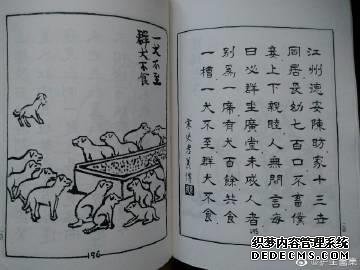 江州德安陳昉家十三世
同居長幼七百口不畜僕
妾上下親睦人無間言每
日必群坐廣堂未成人者
別為一席有犬百餘共食
一槽一犬不至群犬不食
宋史孝義傳
一犬不至
群犬不食
196
织梦内容管理系统
DEDECMS.COM